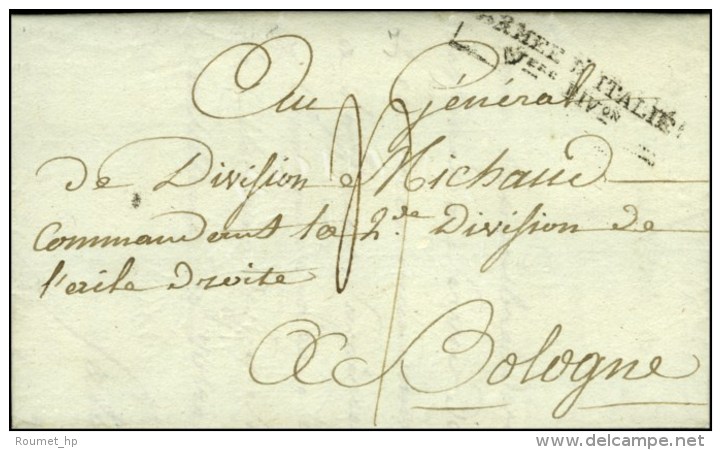 ARMÉE D'ITALIE
DIVon
Au Général
de Division Michaud
commandant la 2.de Division de
l'aile droite
A Bologne
Roumet_hp
© delcampe.net